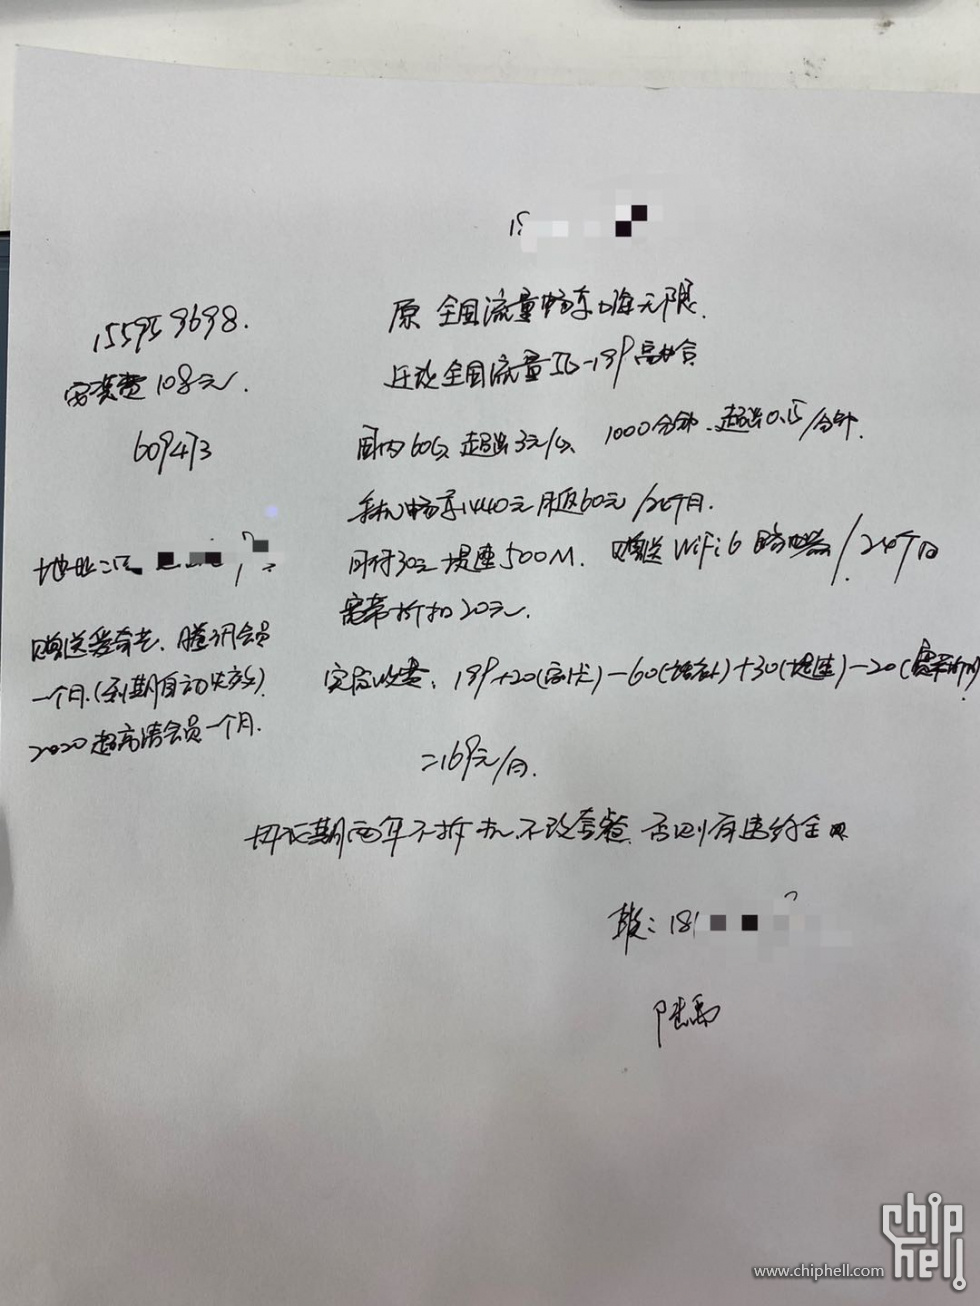 15595 9698.
安装费 108元.
609473
地址:
赠送爱奇艺、腾讯会员
一个月.(到期自动失效).
2020超高清会员一个月.
18
原 全国流量畅享上海无限.
迁改全国流量5G-199融合
国内60G 超出3元/G、1000分钟.超出0.15/分钟.
手机畅享1440元 月返60元/24个月.
月付30元 提速500M. 赠送WiFi6路由器/24个月
宽带折扣20元.
实际收费:199+20()-60()+30(提速)-20(宽带折扣)
=169元/月.
期两年不拆机.不改套餐.否则有违约金
: 181
陆禹
chip hell
www.chiphell.com